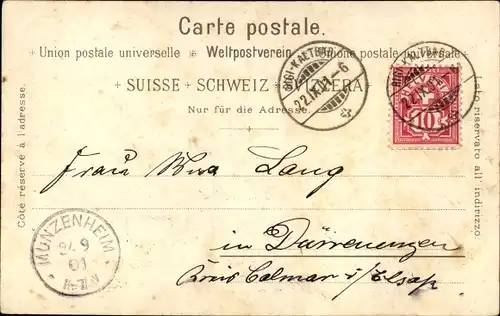 Carte postale.
Union postale universelle. Weltpostverein. Unione postale universale.
SUISSE SCHWEIZ SVIZZERA
Nur für die Adresse.
Côté réservé à l'adresse.
Lato riservato all' indirizzo.
RIGI-KALTBAD
22.IX.01-6
10
Frau Wwa Lang
in Dürrenenzen
Kreis Colmar i/Elsaß
MUNZENHEIM
24.9
01